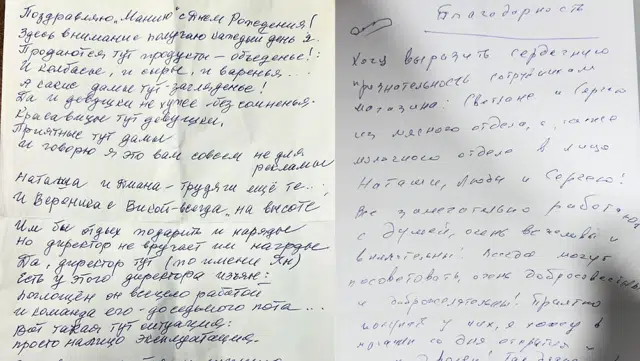 Поздравляю „Манию" с Днём Рождения!
Здесь внимание получаю каждый день я.
Продаются тут продукты – объеденье!:
И колбасы, и сыры, и варенья...
А какие дамы тут – загляденье!
Да и девушки не хуже – без сомненья.
Красавицы тут девушки,
Приятные тут дамы
И говорю я это вам совсем не для
рекламы
Наташа и Диана – трудяги ещё те...
И Вероника с Викой – всегда „на высоте"
Им бы отдых подарить и наряды
Но директор не вручает им награды
Да, директор тут (по имени Ян)
Есть у этого директора изъян:
поглощён он всецело работой
и команда его – до седьмого пота...
Вот такая тут ситуация:
просто налицо эксплуатация.
Благодарность
Хочу выразить сердечную
признательность сотрудникам
магазина: Светлане и Сергею
из мясного отдела, а также
молочного отдела в лице
Наташи, Люды и Сергея!
Все замечательно работают
с душей, очень вежливы и
внимательны! Всегда могут
посоветовать, очень добросовестны
и доброжелательны! Приятно
у них, я хожу в
магазин со дня открытия